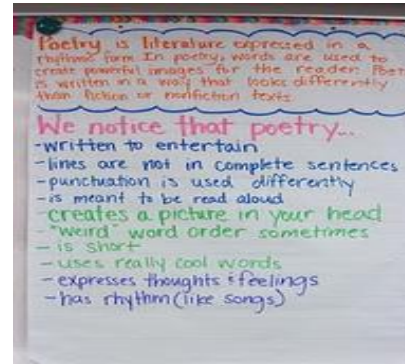 Poetry is literature expressed in a
rhythmic form. In poetry, words are used to
create powerful images for the reader. Poet
is written in a way that looks differently
than fiction or nonfiction texts.
We notice that poetry...
-written to entertain
-lines are not in complete sentences
-punctuation is used differently
-is meant to be read aloud
-creates a picture in your head
-"weird" word order sometimes
-is short
-uses really cool words
-expresses thoughts & feelings
-has rhythm (like songs)